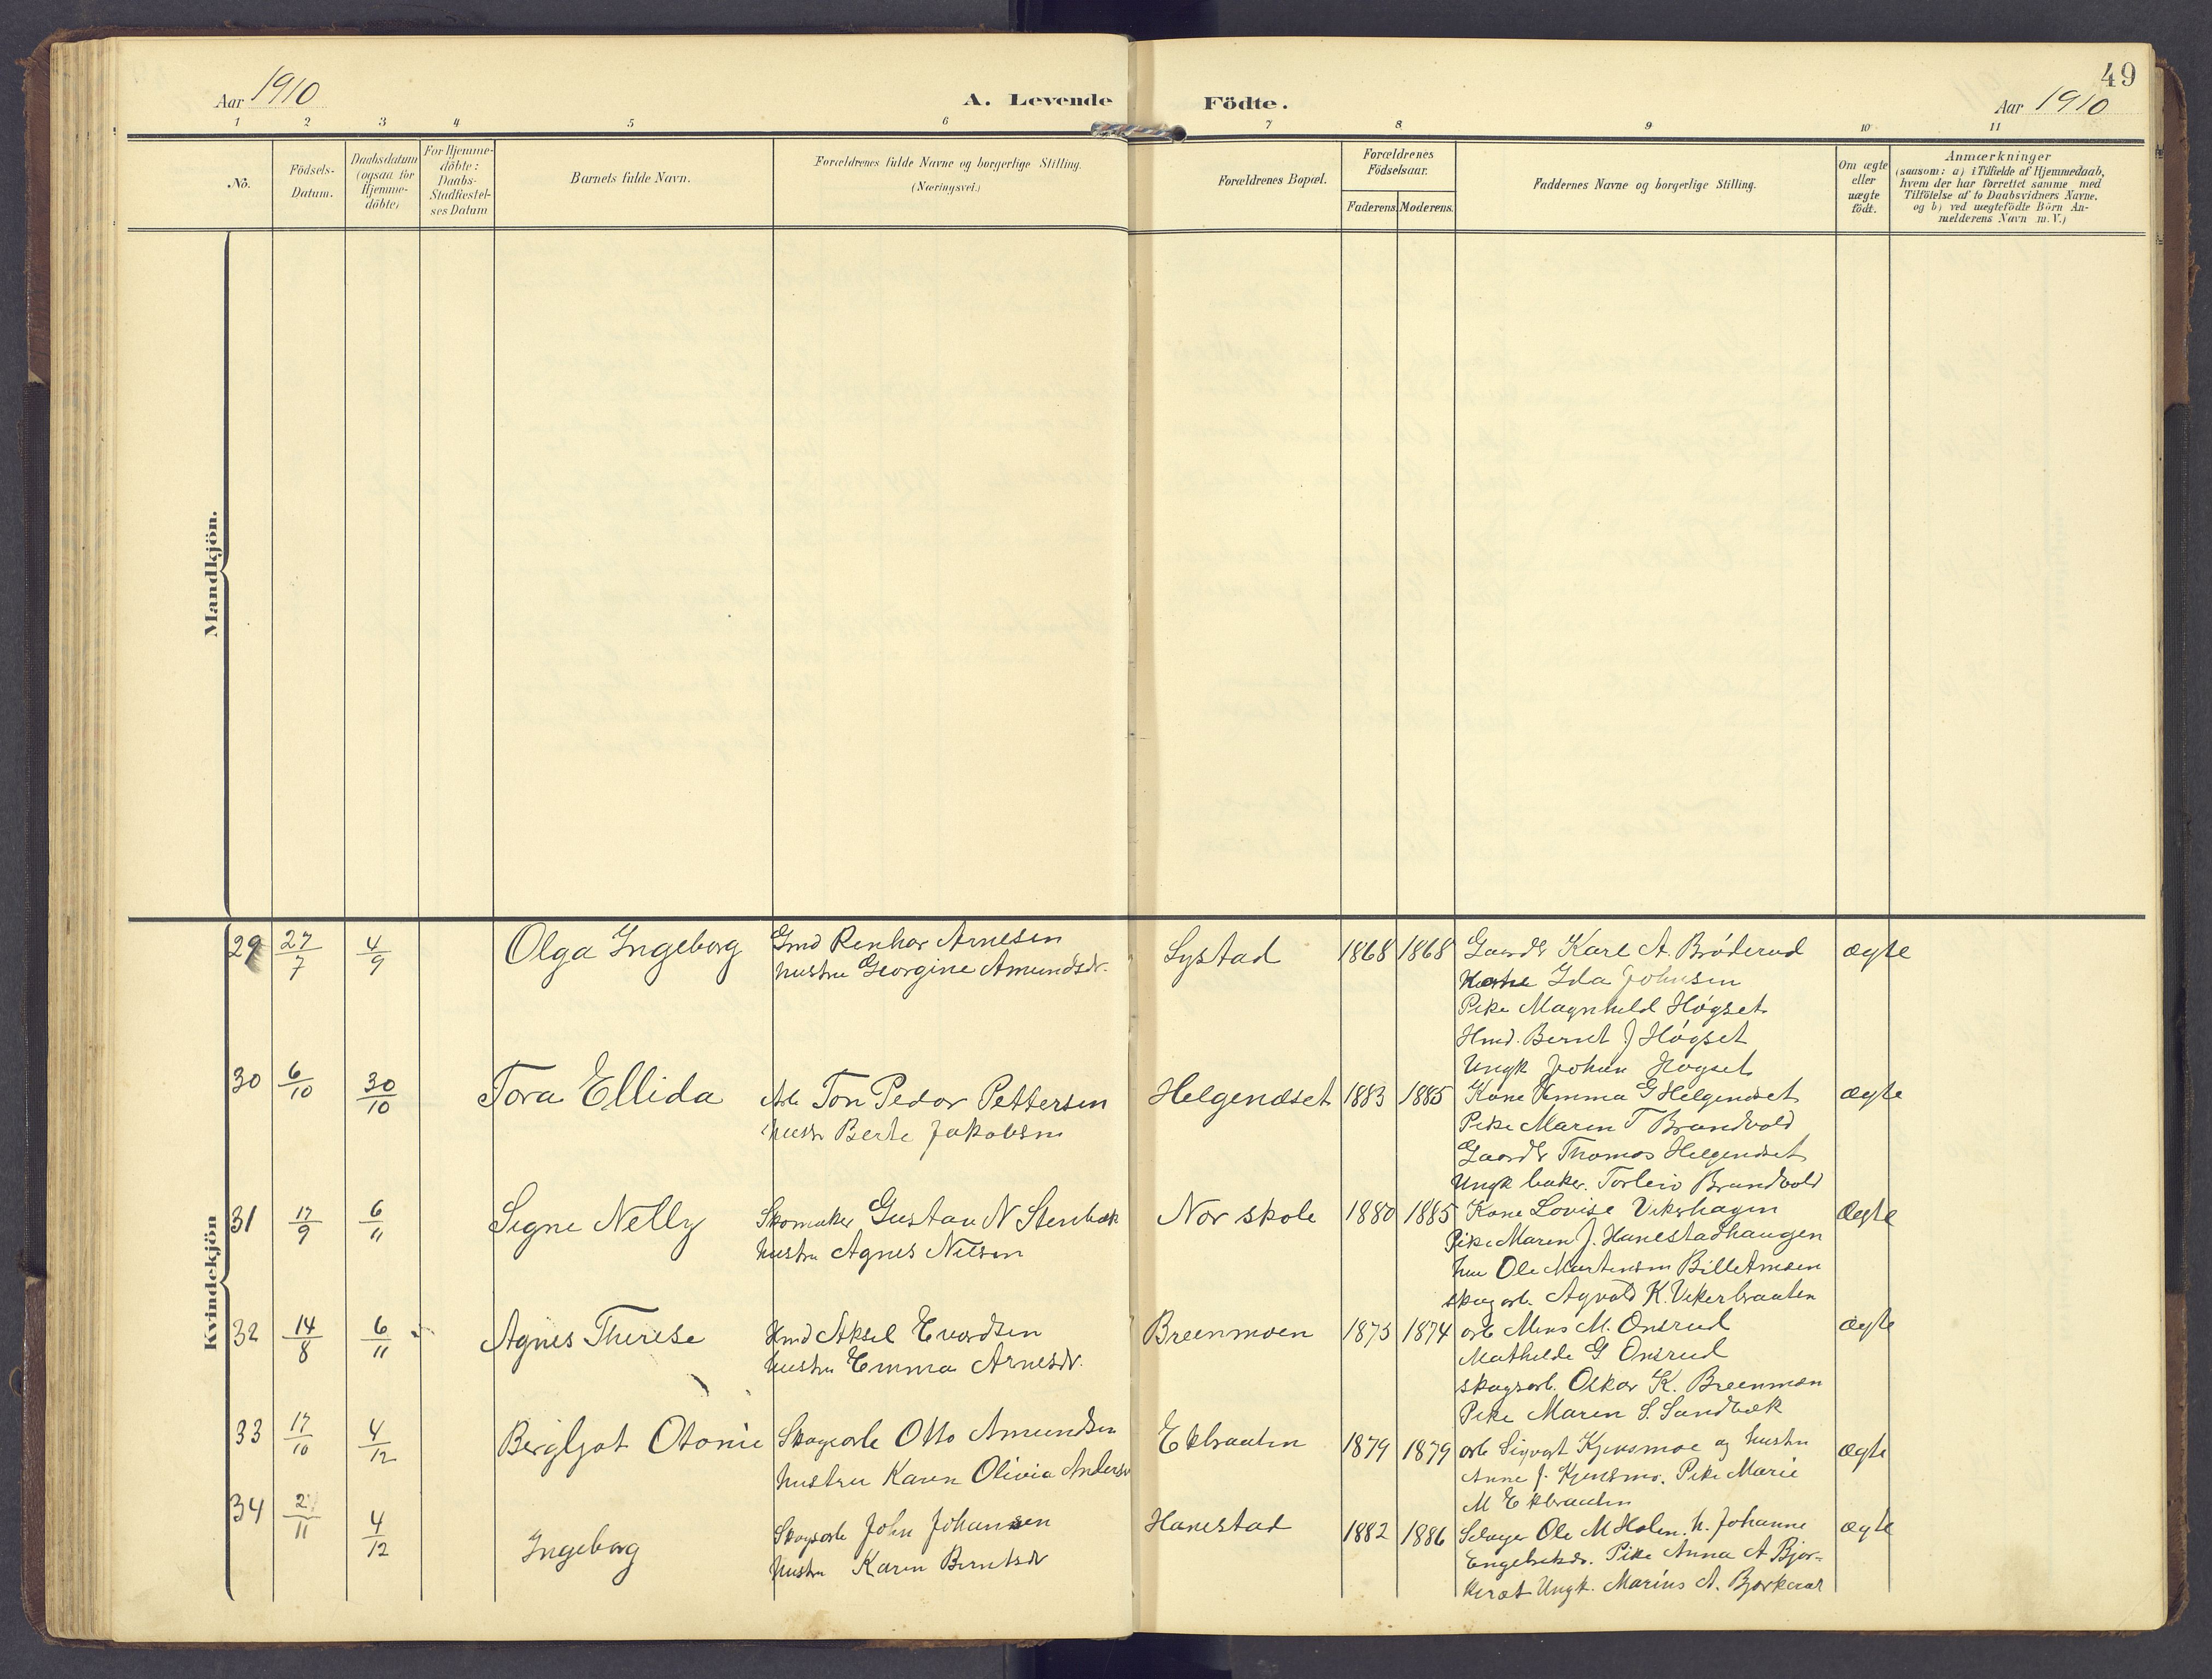 Aar 1910
A. Levende Födte.
49
Aar 1910
1 2 3 4 5 6 7 8 9 10 11
No.
Födsels-
Datum.
Daabsdatum
(ogsaa for
Hjemme-
döbte)
For Hjemme-
döbte:
Daabs-
Stadfæstel-
ses Datum
Barnets fulde Navn.
Forældrenes fulde Navne og borgerlige Stilling.
(Næringsvei.)
Forældrenes Bopæl.
Forældrenes
Födselsaar.
Faderens. Moderens.
Faddernes Navne og borgerlige Stilling.
Om ægte
eller
uægte
födt.
Anmærkninger
(saasom: a) i Tilfælde af Hjemmedaab,
hvem der har forrettet samme med
Tilföielse af to Daabsvidners Navne.
og b) ved uægtefödte Börn An-
melderens Navn m. V.)
Mandkjön.
Kvindekjön
29 27/7 4/9 Olga Ingeborg
Gmd Renhar Arnesen
hustru Georgine Amundsdr.
Systad 1868 1868
Gaardbr Karl A. Bröderud
Ida Johnsen
Pike Magnhild Högset
Hmd. Bernt J Högset
Ungk Johan Högset
ægte
30 6/10 30/10 Tora Ellida
Arb Ton Pedor Pettersen
hustr Berte Jakobsen
Helgenæset 1883 1885
Kone Emma G Helgenæset
Pike Maren T Brandvold
Gaardbr Thomas Helgenæset
Ungk baker. Torleiv Brandvold
ægte
31 17/9 6/11 Signe Nelly
Skomaker Gustav N Stenbæk
hustru Agnes Nilsen
Nor skole 1880 1885
Kone Lovise Vikerhagen
Pike Maren J. Hanestadhaugen
Ole Martinsen Billet Arnesen
skogarb. Agvald K. Vikerbraaten
ægte
32 14/8 6/11 Agnes Therese
Hmd Aksel Evardsen
hustru Emma Arnesdr.
Breenmoen 1873 1874
arb Mons M. Onsrud
Mathilde G Onsrud
skogsarb. Oskar K. Breenmoen
Pike Maren S. Sandbæk
ægte
33 17/10 4/12 Bergljot Otonie
Skogsarb Otto Amundsen
hustru Karen Olivia Andersdr
Ekbraaten 1879 1879
arb Sigvart Kjensmoe og hustru
Anne J. Kjensmo. Pike Marie
M Ekbraaten
ægte
34 2/11 4/12 Ingeborg
Skogsarb John Johansen
hustru Karen Berntsdr
Hanestad 1882 1886
Selveger Ole M Holen. h. Johanne
Engebretsdr. Pike Anna A Bjør-
keraat Ungk. Marius A. Bjørkeraat
ægte